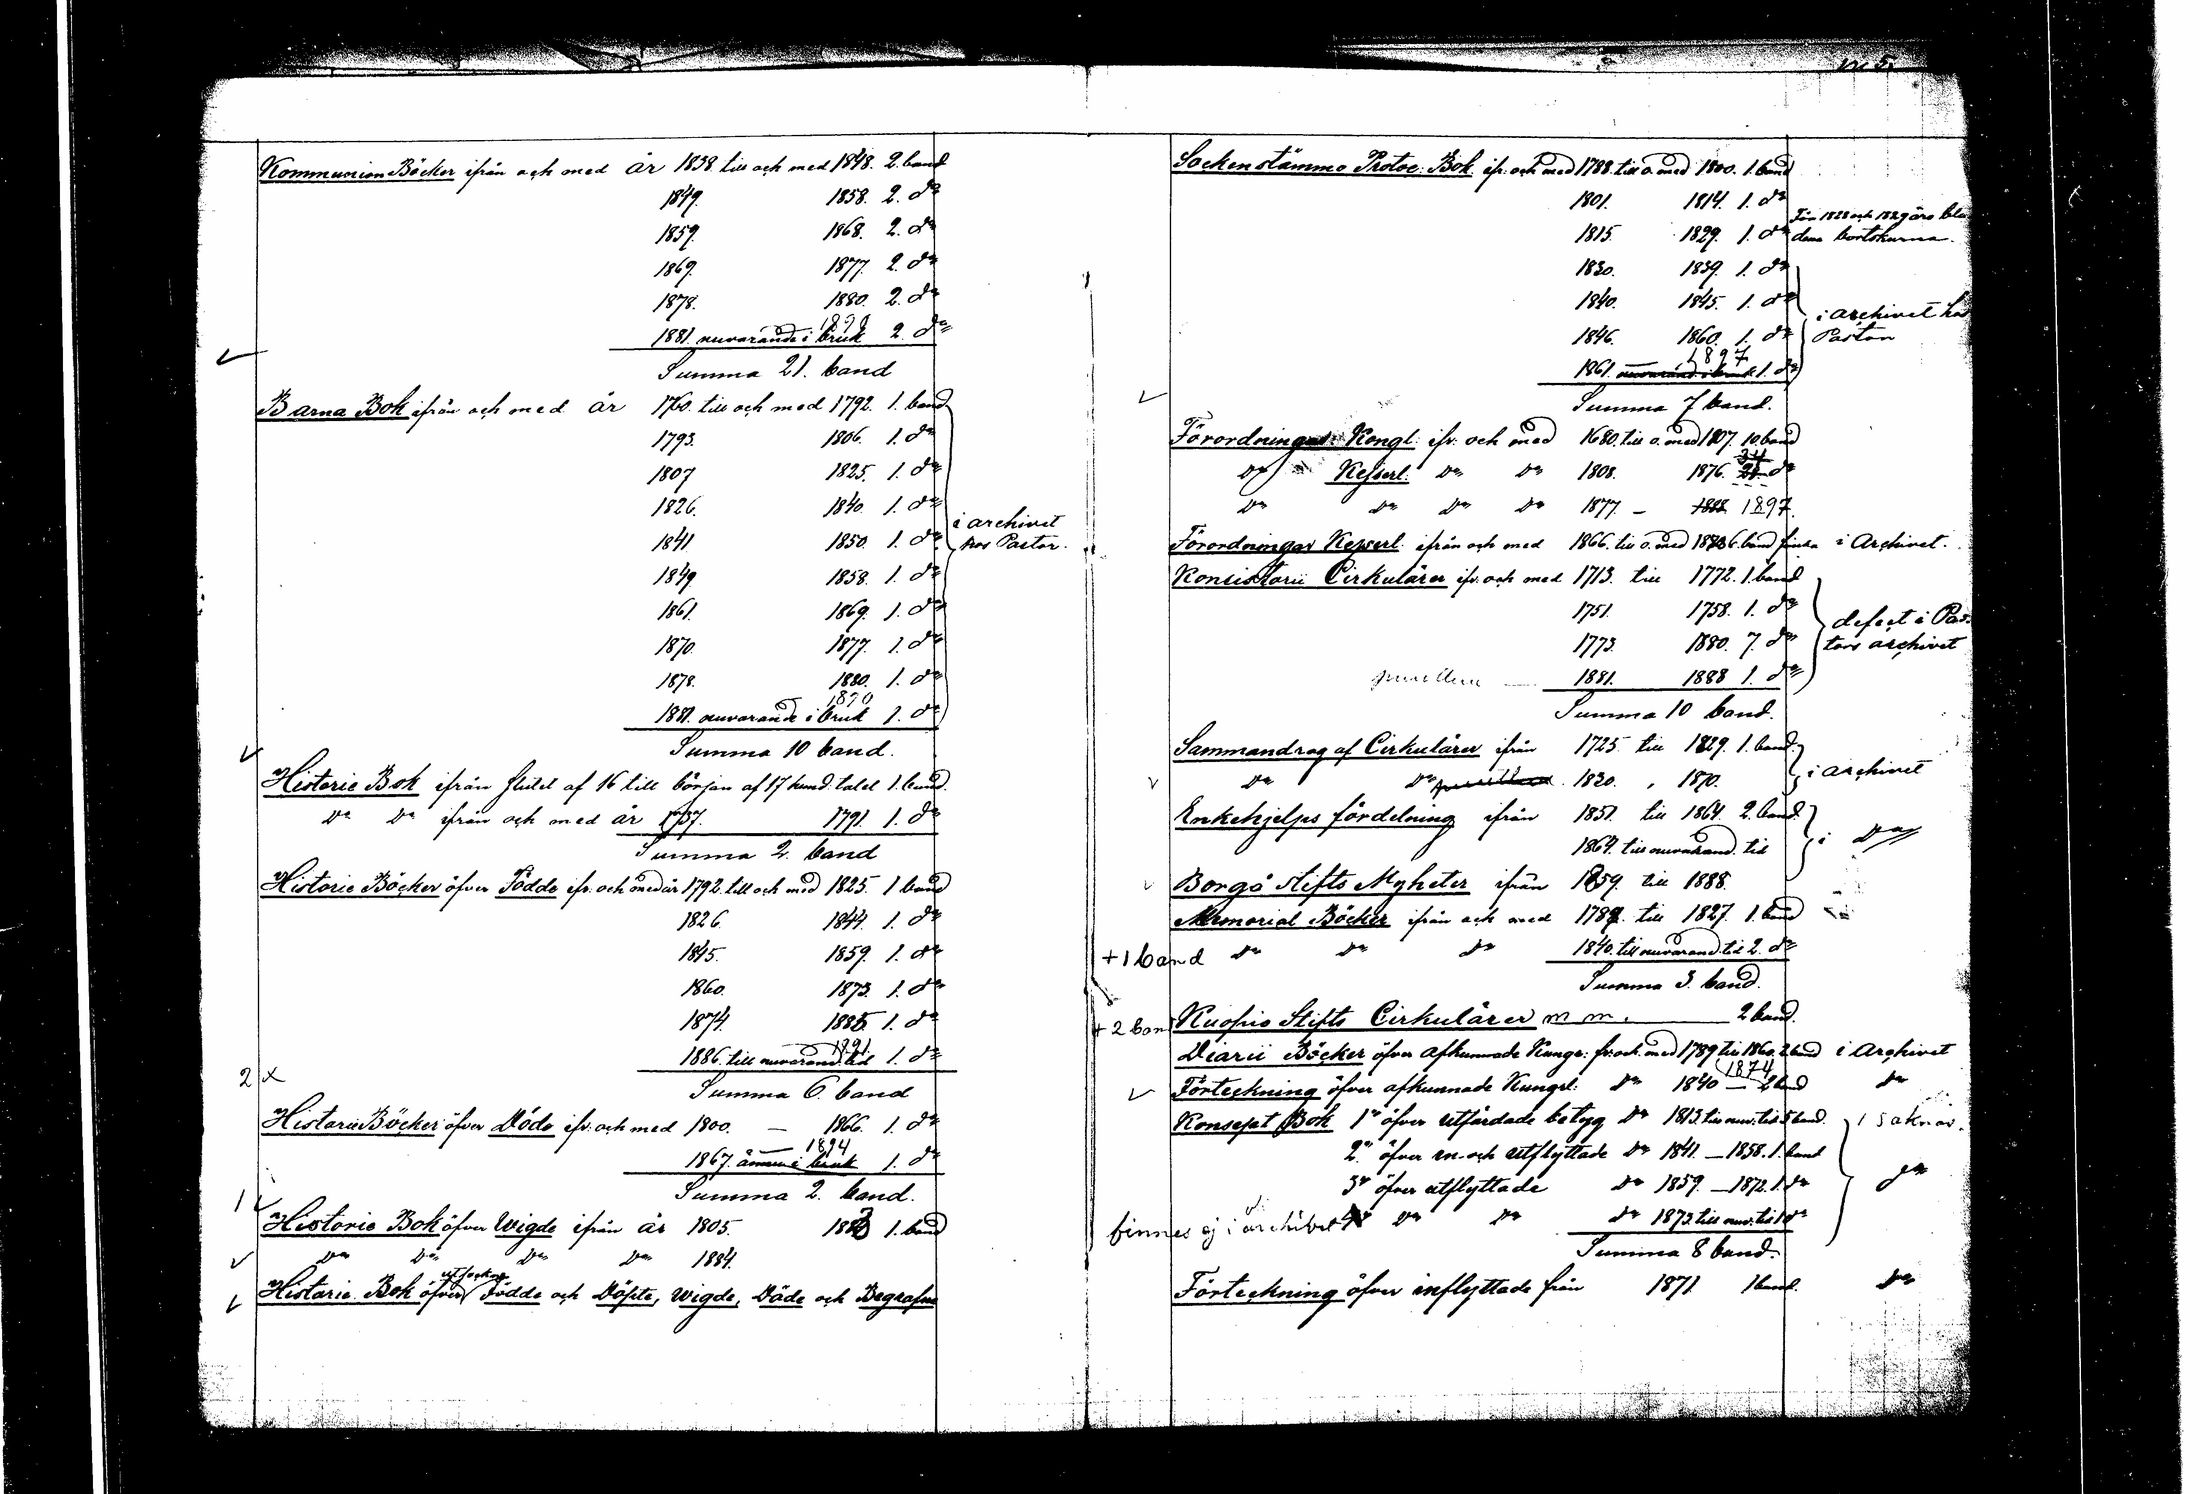 Kommunion Böcker ifrån och med år 1838. till och med 1848. 2. band
1849. 1858. 2. do
1859. 1868. 2. do
1869. 1877. 2. do
1878. 1880. 2. do
1881. nuvarande i bruk 2. do
Summa 21. band
Barna Bok ifrån och med år 1760. till och med 1792. 1. band
1793. 1806. 1. do
1807 1825. 1. do
1826. 1840. 1. do
i archivet
1841 1850. 1. do hos Pastor.
1849 1858. 1. do
1861. 1869. 1. do
1870. 1877. 1. do
1878. 1880. 1. do
1890
1881. nuvarande i bruk 1. do
Summa 10 band.
Historie Bok ifrån slutet af 16 till början af 17 hund. talet 1. band.
Do Do ifrån och med år 1737. 1791. 1. do
Summa 2. band
Historie Böcker öfver Födde ifr. och med år 1792. till och med 1825. 1 band
1826. 1844. 1. do
1845. 1859. 1. do
1860. 1873. 1. do
1874. 1885 1. do
1891.
1886. till nuvarand. tid 1. do
2 x
Summa 6. band
Historie Böcker öfver Döde ifr. och med 1800. — 1866. 1. do
1894
1867. ännu i bruk 1. do
Summa 2. band.
1
Historie Bok öfver Wigde ifrån år 1805. 1883 1. band
Do Do Do Do 1884.
utsocknes
Historie Bok öfver Födde och Döpte, Wigde, Döde och Begrafne
Sockenstämmo Protoc. Bok ifr. och med 1788. till o. med 1800. 1. band
1801. 1814. 1. do
från 1828 och 1829 äro bla
1815. 1829. 1. do dena bortskurna.
1830. 1839. 1. do
1840. 1845. 1. do
i archivet hos
1846. 1860. 1. do Pastorn
1897
1861. nuvarand. i bruk 1. do
Summa 7 band.
Förordningar: Kongl: ifr. och med 1680. till o. med 1807. 10. band
34
Do Kejserl: Do Do 1808. 1876. do
Do Do Do Do 1877 — 1888 1897.
Förordningar Kejserl. ifrån och med 1866. till o. med 6. band finska i Archivet.
Konsistorii Cirkulärer ifr. och med 1713. till 1772. 1. band
1751. 1758. 1. do
defect i Pas-
1773. 1880. 7. do tors archivet
1881. 1888 1. do
Summa 10 band.
Sammandrag af Cirkulärer ifrån 1725. till 1829. 1. band.
i archivet
Do Do 1830. " 1870.
Enkehjelps fördelning ifrån 1851. till 1864. 2. band.
i Do
1864. till nuvarand. tid
Borgå Stifts Nyheter ifrån 1859. till 1888.
Memorial Böcker ifrån och med 1787. till 1827. 1. band
+ 1 band Do Do Do 1840. till nuvarand. tid 2. do
Summa 3. band.
+ 2 band Kuopio Stifts Cirkulärer m m. 2 band.
Diarii Böcker öfver afkunnade Kungr: fr. och med 1789 till 1860. 2 band i Archivet
1874
Förteckning öfver afkunnade Kungrl: Do 1840 — 2 band do
Konsept Bok 1o öfver utfärdade betyg Do 1813. till nuv. tid 5 band. 1 saknas.
2o öfver in- och utflyttade Do 1841. — 1858. 1. band
3o öfver utflyttade Do 1859. — 1872. 1. do do
finnes ej i archivet 4o Do Do Do 1873. till nuv. tid 1 do
Summa 8 band.
Förteckning öfver inflyttade från 1871. 1 band. Do